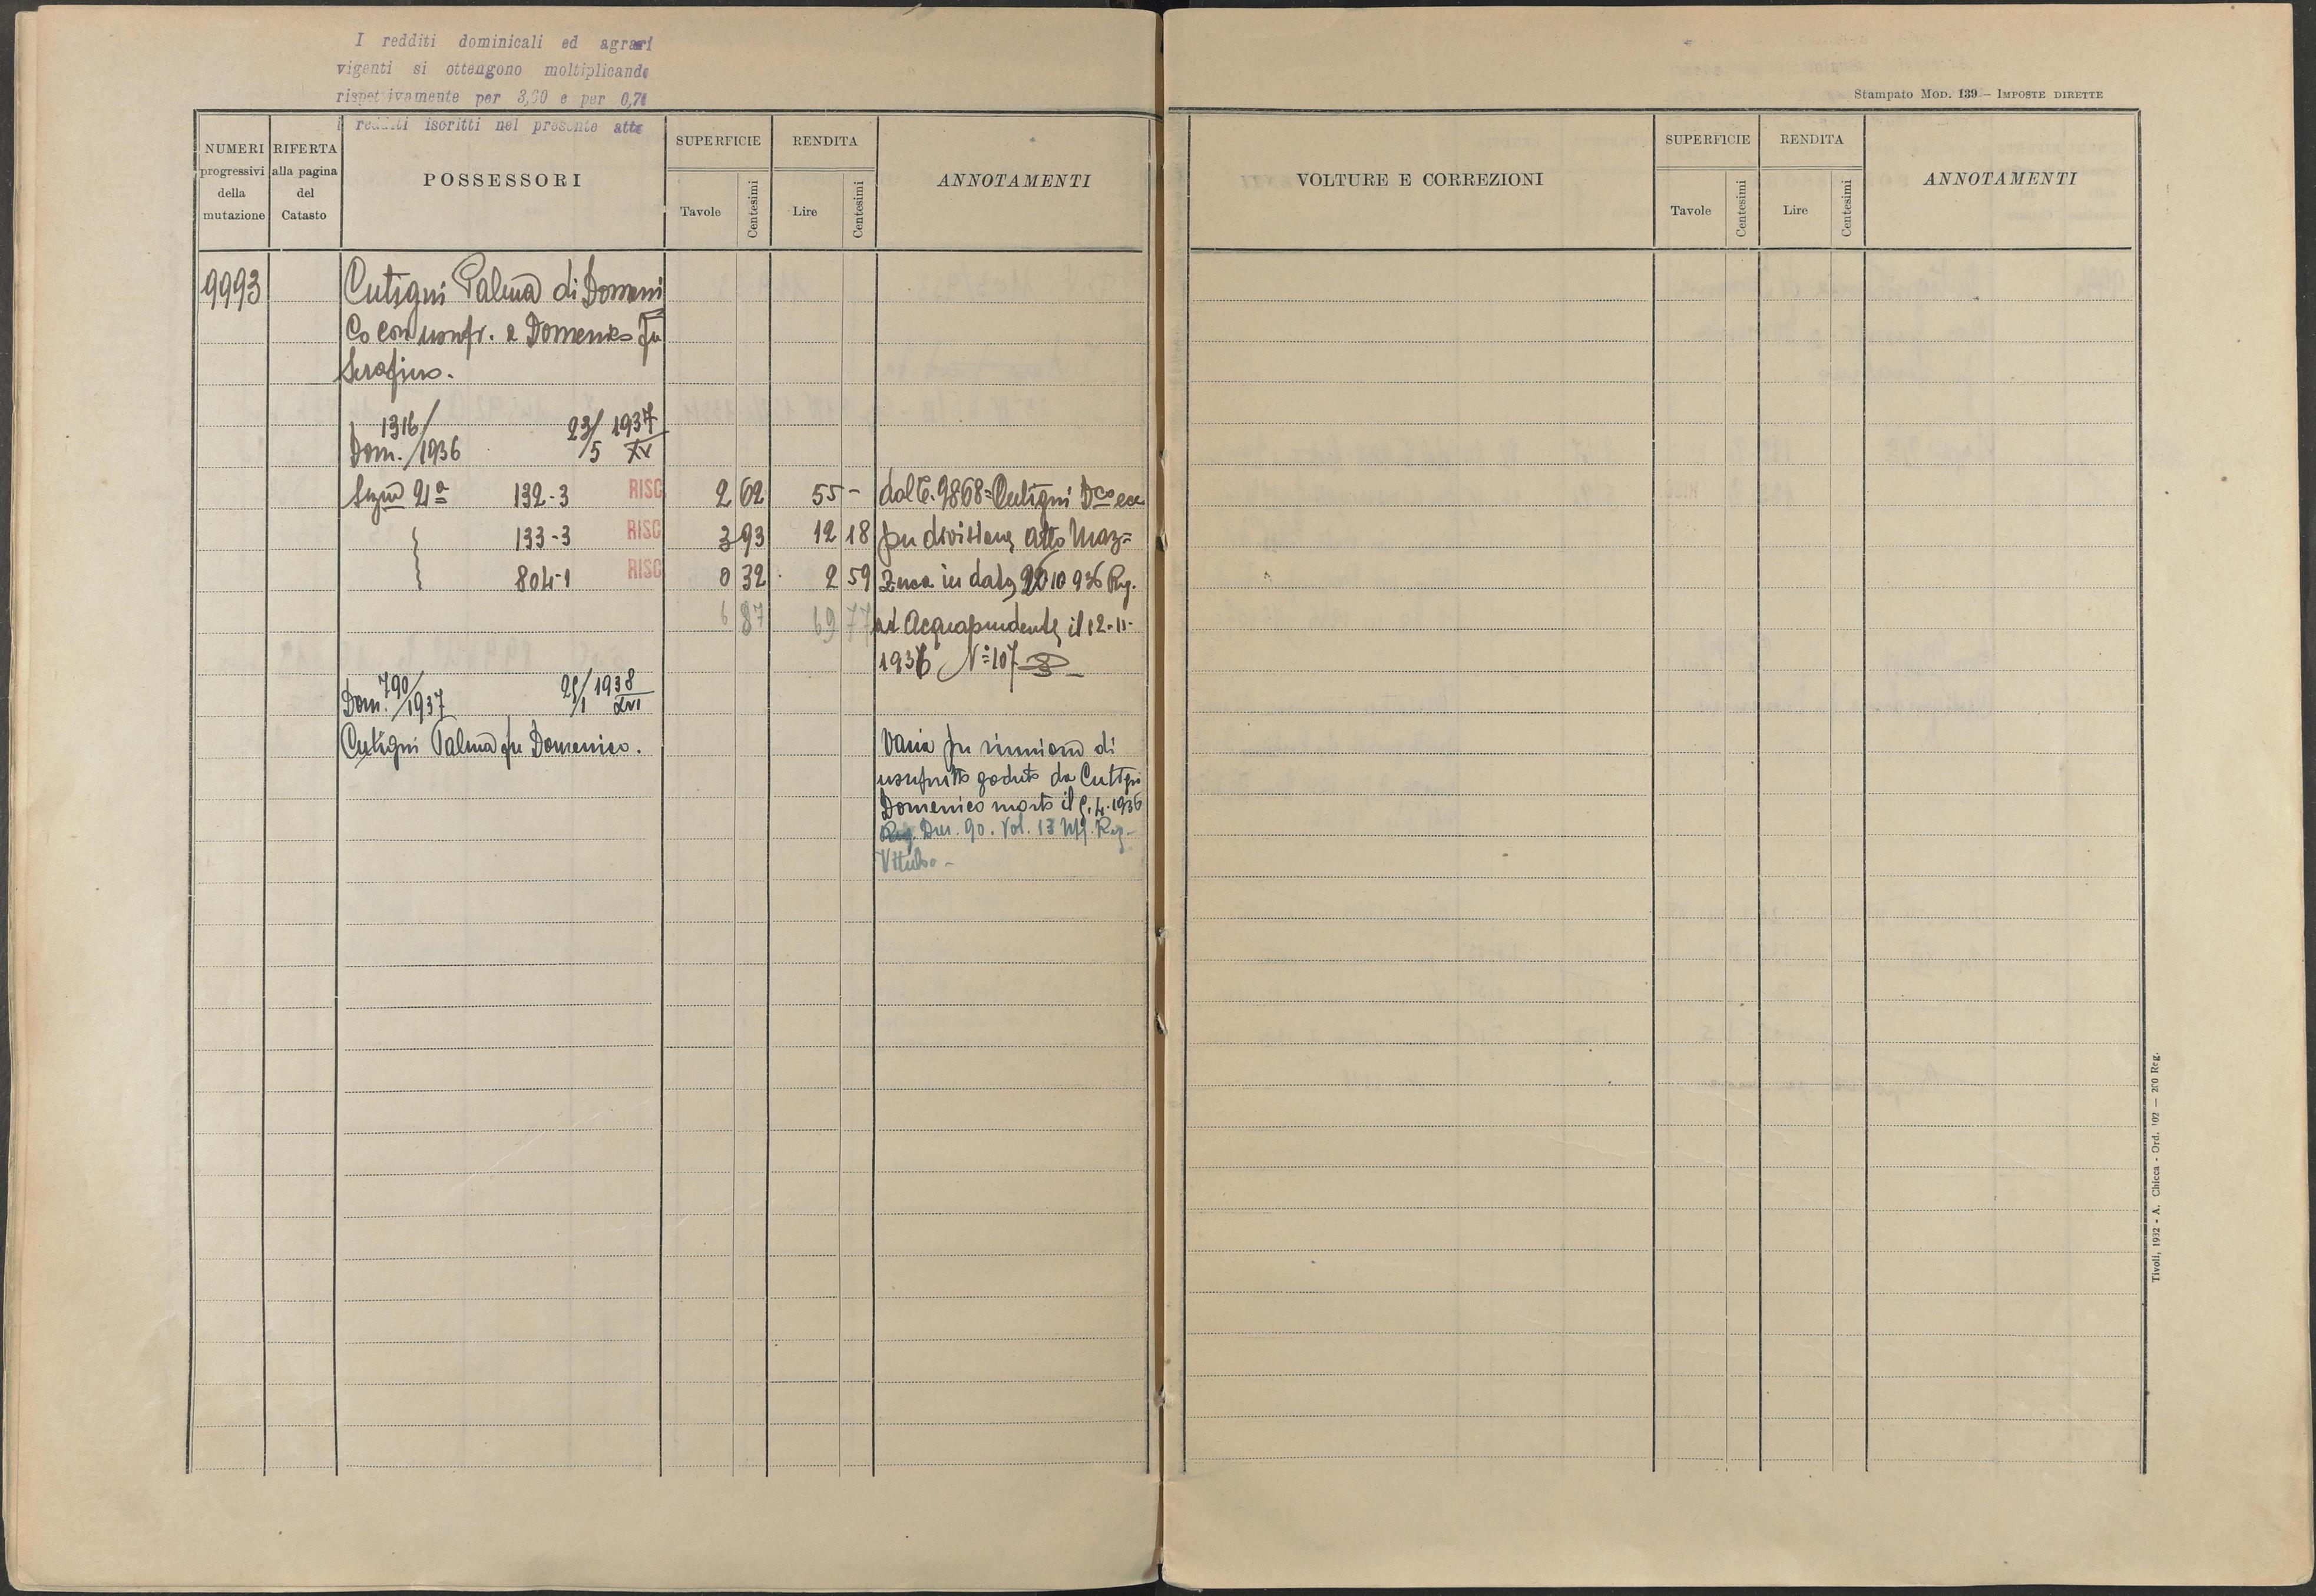 I redditi dominicali ed agrari
vigenti si ottengono moltiplicando
rispettivamente per 3,30 e per 0,70
i redditi iscritti nel presente atto
NUMERI progressivi della mutazione
RIFERTA alla pagina del Catasto
POSSESSORI
SUPERFICIE
Tavole
Centesimi
RENDITA
Lire
Centesimi
ANNOTAMENTI
9993
Cutigni Palma di Domeni
co con usufr. a Domenico fu
Serafino.
1316/
Dom. /1936 23/5 1937 XV
Sezne 21a 132-3 RISC 2 62 55 - dal C. 9868 = Cutigni Dco ecc
133-3 RISC 3 93 12 18 per divisione atto Maz=
804-1 RISC 0 32 2 59 in data 26 10 936 Reg.
6 87 69 77 ad Acquapendente il 12-11-
1936 N° 107
790/
Dom. /1937 1938 XVI
Cutigni Palma fu Domenico.
Varia per riunione di
usufrutto goduto da Cutigni
Domenico morto il 4.1936
Reg. Den. 90. Vol. 13 Uff. Reg.
Viterbo -
Stampato MOD. 139 — IMPOSTE DIRETTE
VOLTURE E CORREZIONI
SUPERFICIE
Tavole
Centesimi
RENDITA
Lire
Centesimi
ANNOTAMENTI
Tivoli, 1932 - A. Chicca - Ord. 102 — 200 Reg.